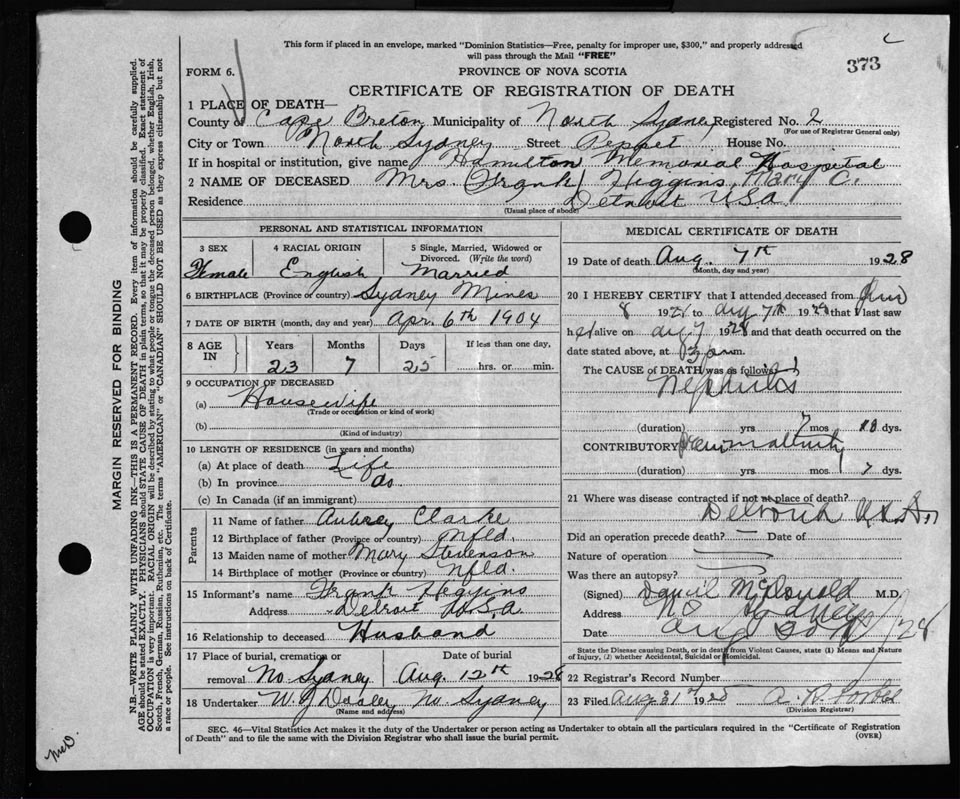 This form if placed in an envelope, marked "Dominion Statistics—Free, penalty for improper use, $300," and properly addressed
will pass through the Mail "FREE"
373
FORM 6.
PROVINCE OF NOVA SCOTIA
CERTIFICATE OF REGISTRATION OF DEATH
1 PLACE OF DEATH—
County of Cape Breton Municipality of North Sydney Registered No. 2
(For use of Registrar General only)
City or Town North Sydney Street Peppet House No.
If in hospital or institution, give name Hamilton Memorial Hospital
2 NAME OF DECEASED Mrs. (Frank) Higgins, Mary C.
Residence Detroit U.S.A.
(Usual place of abode)
PERSONAL AND STATISTICAL INFORMATION
3 SEX 4 RACIAL ORIGIN 5 Single, Married, Widowed or
Divorced. (Write the word)
Female English Married
6 BIRTHPLACE (Province or country) Sydney Mines
7 DATE OF BIRTH (month, day and year) Apr. 6th 1904
8 AGE IN Years Months Days If less than one day,
23 7 25 hrs. or min.
9 OCCUPATION OF DECEASED
(a) Housewife
(Trade or occupation or kind of work)
(b)
(Kind of industry)
10 LENGTH OF RESIDENCE (in years and months)
(a) At place of death Life
(b) In province do
(c) In Canada (if an immigrant)
Parents
11 Name of father Aubrey Clarke
12 Birthplace of father (Province or country) Nfld.
13 Maiden name of mother Mary Stevenson
14 Birthplace of mother (Province or country) Nfld.
15 Informant's name Frank Higgins
Address Detroit U.S.A
16 Relationship to deceased Husband
17 Place of burial, cremation or removal Date of burial
No. Sydney Aug. 12th 1928
18 Undertaker W. J. Dooley No. Sydney
(Name and address)
MEDICAL CERTIFICATE OF DEATH
19 Date of death Aug. 7th 1928
(Month, day and year)
20 I HEREBY CERTIFY that I attended deceased from
8 1928 to Aug 7th 1928 that I last saw
her alive on Aug 7 1928 and that death occurred on the
date stated above, at m.
The CAUSE of DEATH was as follows:
Nephritis
(duration) yrs 7 mos 10 dys.
CONTRIBUTORY
(duration) yrs. mos. 7 dys.
21 Where was disease contracted if not at place of death?
Detroit
Did an operation precede death? Date of
Nature of operation
Was there an autopsy?
(Signed) Daniel McDonald M.D.
Address No Sydney
Date Aug 28
State the Disease causing Death, or in death from Violent Causes, state (1) Means and Nature
of Injury, (2) whether Accidental, Suicidal or Homicidal.
22 Registrar's Record Number
23 Filed Aug 31st 1928
(Division Registrar)
SEC. 46—Vital Statistics Act makes it the duty of the Undertaker or person acting as Undertaker to obtain all the particulars required in the "Certificate of Registration
of Death" and to file the same with the Division Registrar who shall issue the burial permit.
(OVER)
MARGIN RESERVED FOR BINDING
N.B.—WRITE PLAINLY WITH UNFADING INK—THIS IS A PERMANENT RECORD. Every item of information should be carefully supplied.
AGE should be stated EXACTLY. PHYSICIANS should STATE CAUSE OF DEATH in plain terms, so that it may be properly classified. Exact statement of
OCCUPATION is very important. RACIAL ORIGIN will be described by stating to what people or tongue the deceased person belonged, whether English, Irish,
Scotch, French, German, Russian, Ruthenian, etc. The terms "AMERICAN" or "CANADIAN" SHOULD NOT BE USED as they express citizenship but not
a race or people. See instructions on back of Certificate.
McD.